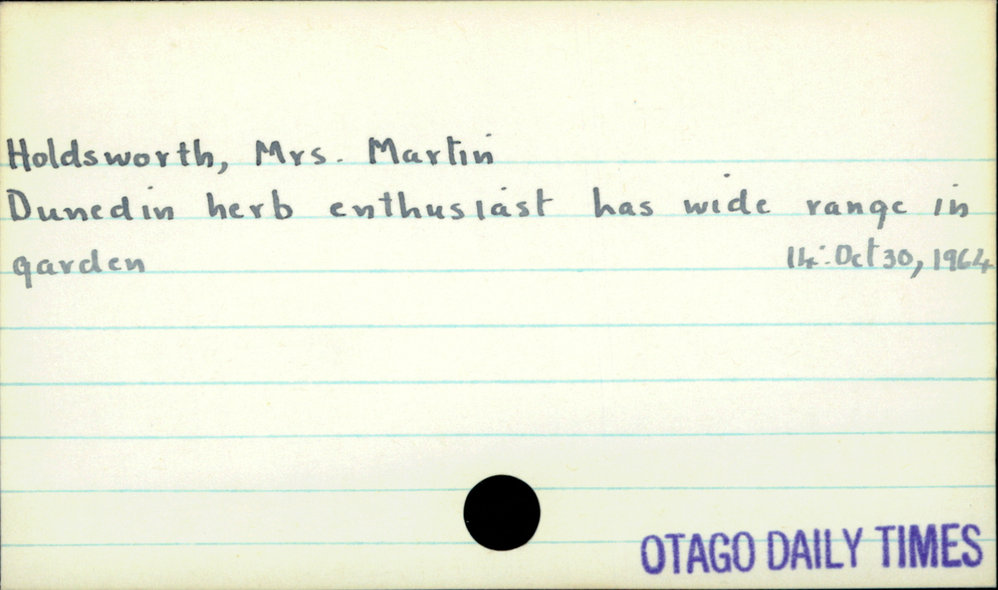 Holdsworth, Mrs. Martin
Dunedin herb enthusiast has wide range in
garden 14: Oct 30, 1964
OTAGO DAILY TIMES